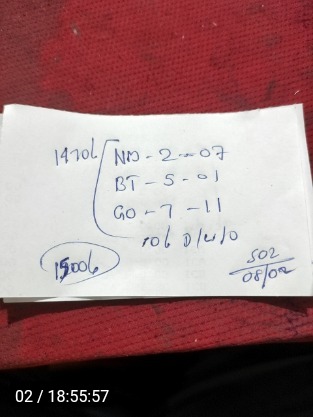 14706 NO - 2 - 07
BT - 5 - 01
GO - 7 - 11
06 D/W/O
15006
S02
08/02
02 / 18:55:57